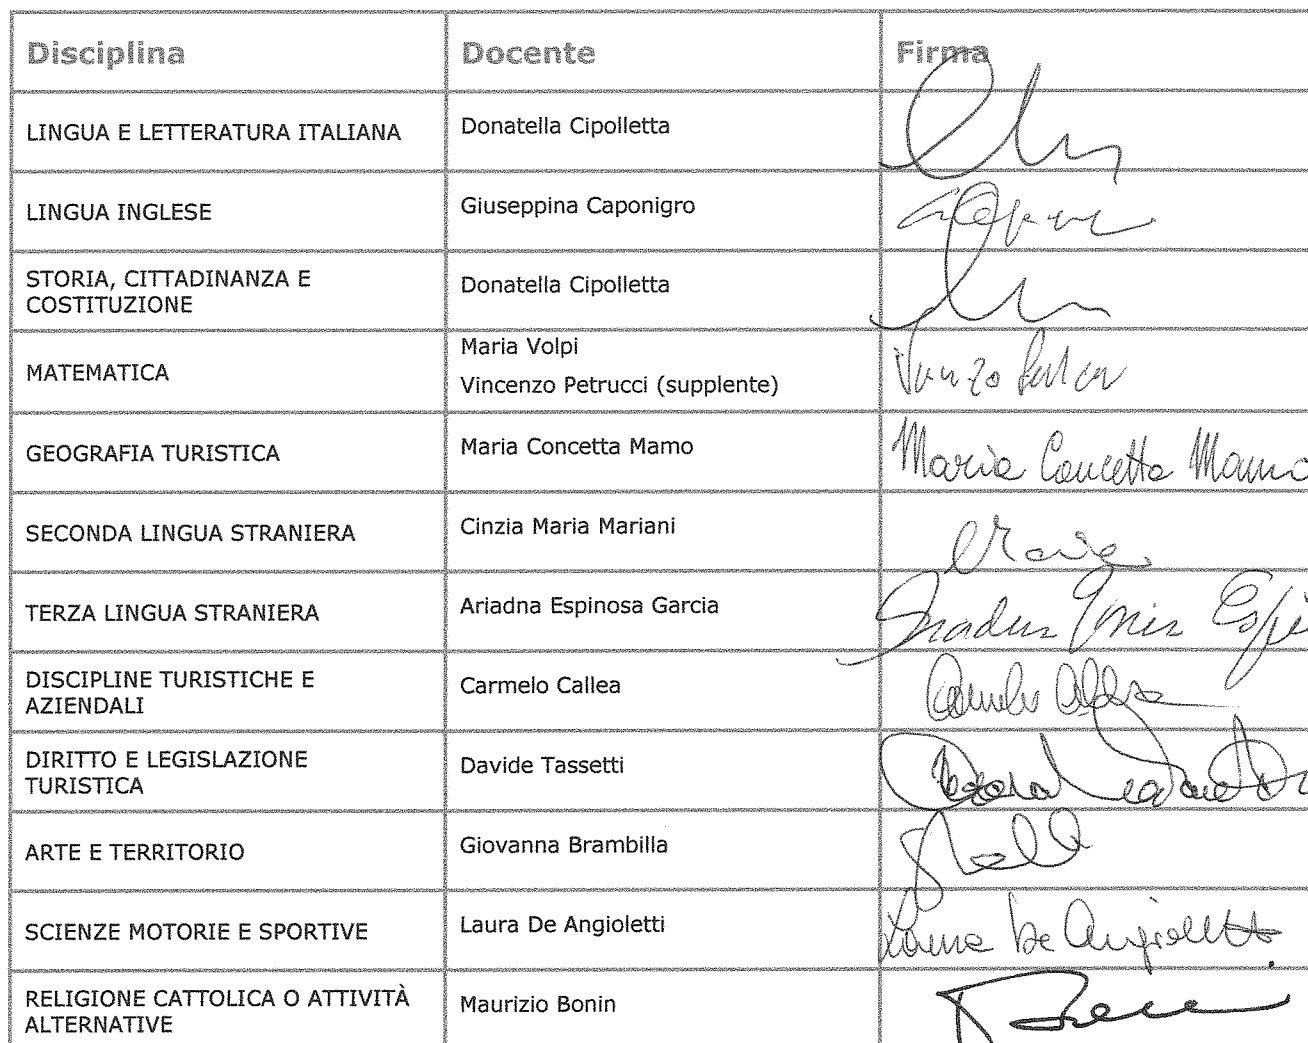 Disciplina Docente Firma
LINGUA E LETTERATURA ITALIANA Donatella Cipolletta
LINGUA INGLESE Giuseppina Caponigro
STORIA, CITTADINANZA E
COSTITUZIONE Donatella Cipolletta
MATEMATICA Maria Volpi
Vincenzo Petrucci (supplente)
GEOGRAFIA TURISTICA Maria Concetta Mamo Maria Concetta Mamo
SECONDA LINGUA STRANIERA Cinzia Maria Mariani
TERZA LINGUA STRANIERA Ariadna Espinosa Garcia
DISCIPLINE TURISTICHE E
AZIENDALI Carmelo Callea
DIRITTO E LEGISLAZIONE
TURISTICA Davide Tassetti
ARTE E TERRITORIO Giovanna Brambilla
SCIENZE MOTORIE E SPORTIVE Laura De Angioletti Laura De Angioletti
RELIGIONE CATTOLICA O ATTIVITÀ
ALTERNATIVE Maurizio Bonin